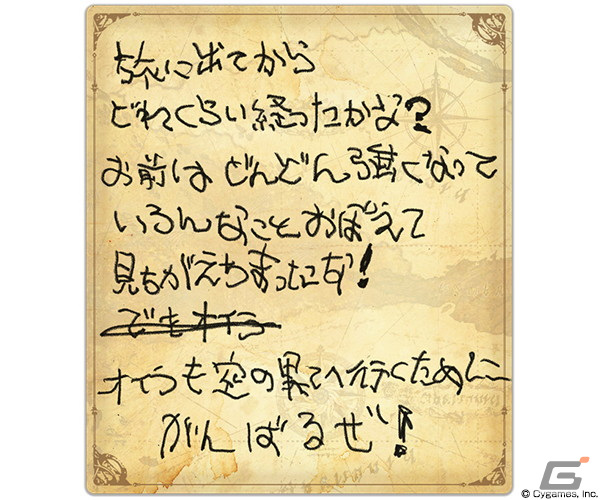 旅に出てから
どれくらい経ったかな?
お前はどんどん強くなって
いろんなことおぼえて
見ちがえちまったな!
でもオイラ
オイラも空の果てへ行くために
がんばるぜ!
G
© Cygames, Inc.